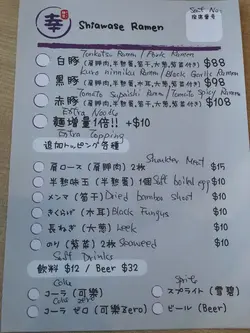 幸 Shiawase Ramen
Seat No.
座席番号
Tonkatsu Ramen / Pork Ramen
白豚 (肩脷肉,半熟蛋,筍干,大葱,紫菜付き) $88
Kuro ninniku Ramen / Black Garlic Ramen
黒豚 (肩脷肉,半熟蛋,筍干,大葱,紫菜付き) $98
Tomato Supaishi Ramen / Tomato Spicy Ramen
赤豚 (肩脷肉,半熟蛋,筍干,大葱,紫菜付き) $108
Extra Noodle
麺増量1倍!! +$10
Extra topping
追加トッピング各種
Shoulder Meat
肩ロース (肩脷肉) 2枚 $15
半熟味玉 (半熟蛋) 1個 Soft boiled egg $10
メンマ (筍干) Dried bamboo shoot $10
きくらげ (木耳) Black Fungus $10
長ねぎ (大葱) Leek $10
のり (紫菜) 2枚 Seaweed $10
Soft Drinks
飲料 $12 / Beer $32
Coke
コーラ (可樂)
Sprite
スプライト (雪碧)
Coke zero
コーラ ゼロ (可樂Zero)
ビール (Beer)